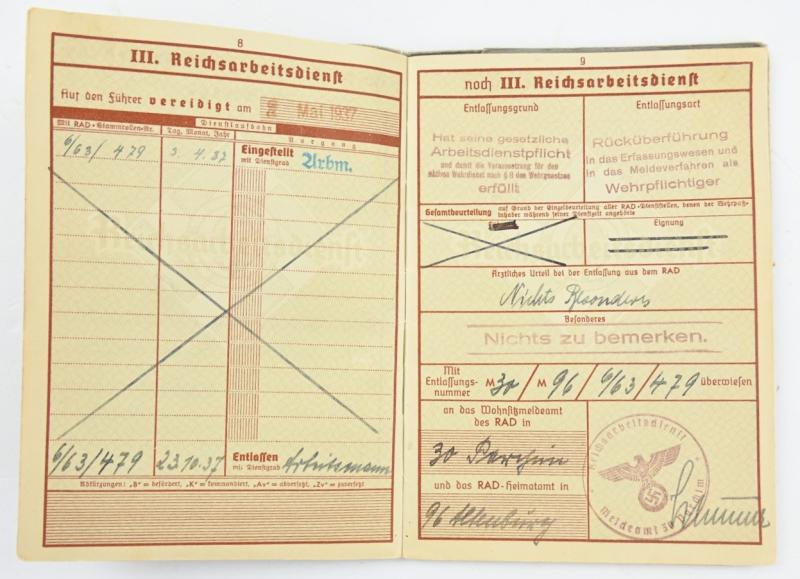 8
III. Reichsarbeitsdienst
Auf den Führer vereidigt am Mai 1937
Dienstlaufbahn
Mit RAD-Stammrollen-Nr. Tag, Monat, Jahr Vorgang
6/63/479 3. 4. 37 Eingestellt mit Dienstgrad Arbm.
6/63/479 23.10.37 Entlassen mit Dienstgrad Arbeitsmann
Abkürzungen: „B“ = befördert, „K“ = kommandiert, „Av“ = abversetzt, „Zv“ = zuversetzt
9
noch III. Reichsarbeitsdienst
Entlassungsgrund
Hat seine gesetzliche
Arbeitsdienstpflicht
und damit die Voraussetzung für den
aktiven Wehrdienst nach § 8 des Wehrgesetzes
erfüllt
Entlassungsart
Rücküberführung
in das Erfassungswesen und
in das Meldeverfahren als
Wehrpflichtiger
Gesamtbeurteilung auf Grund der Einzelbeurteilung aller RAD-Dienststellen, denen der Wehrpaß-
inhaber während seiner Dienstzeit angehörte
Eignung
Ärztliches Urteil bei der Entlassung aus dem RAD
Nichts Besonderes
Besonderes
Nichts zu bemerken.
Mit
Entlassungs-
nummer M 30 / M 96 / 6/63/479 überwiesen
an das Wohnsitzmeldeamt
des RAD in
30 Parchim
und das RAD-Heimatamt in
96 Altenburg
Reichsarbeitsdienst
Meldeamt 30 Parchim